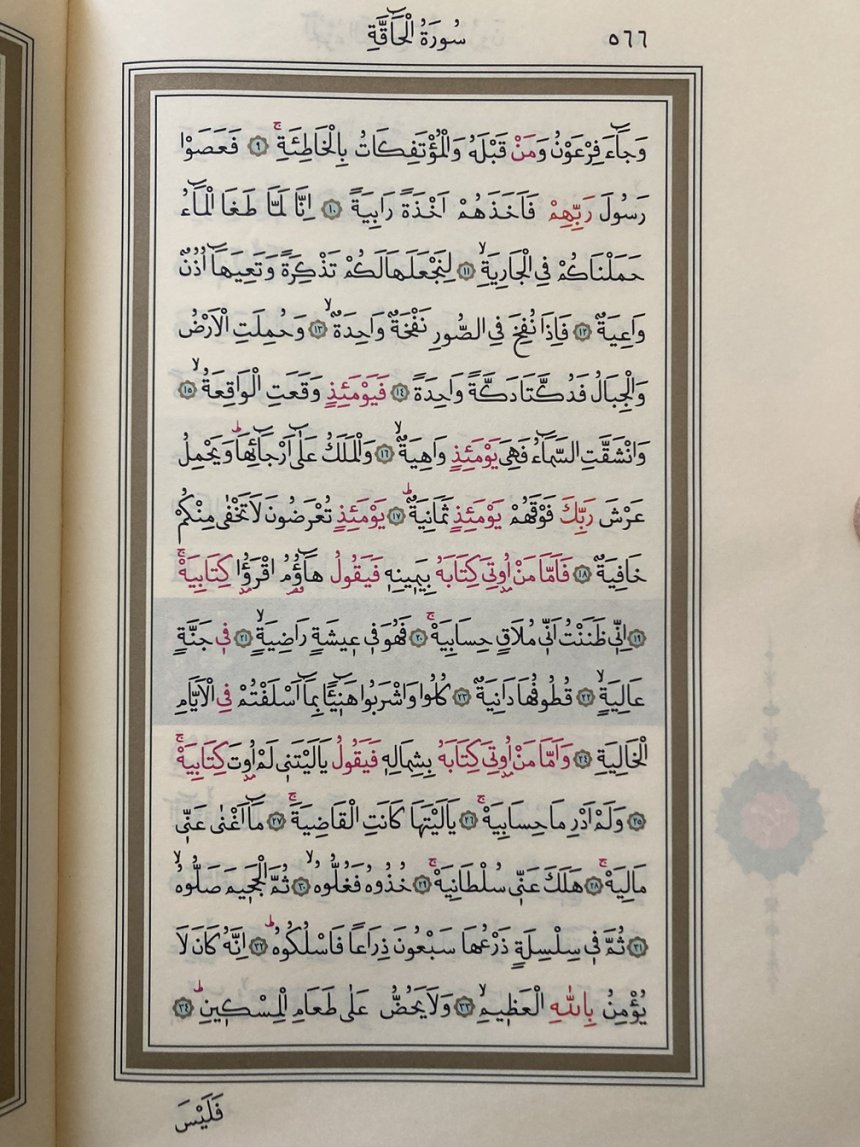 سُورَةُ الْحَاقَّةِ ٥٦٦
وَجَٓاءَ فِرْعَوْنُ وَمَنْ قَبْلَهُ وَالْمُؤْتَفِكَاتُ بِالْخَاطِئَةِۚ ﴿٩﴾ فَعَصَوْا
رَسُولَ رَبِّهِمْ فَاَخَذَهُمْ اَخْذَةً رَابِيَةً ﴿١٠﴾ اِنَّا لَمَّا طَغَا الْمَٓاءُ
حَمَلْنَاكُمْ فِى الْجَارِيَةِۙ ﴿١١﴾ لِنَجْعَلَهَا لَكُمْ تَذْكِرَةً وَتَعِيَهَٓا اُذُنٌ
وَاعِيَةٌ ﴿١٢﴾ فَاِذَا نُفِخَ فِى الصُّورِ نَفْخَةٌ وَاحِدَةٌۙ ﴿١٣﴾ وَحُمِلَتِ الْاَرْضُ
وَالْجِبَالُ فَدُكَّتَا دَكَّةً وَاحِدَةً ﴿١٤﴾ فَيَوْمَئِذٍ وَقَعَتِ الْوَاقِعَةُۙ ﴿١٥﴾
وَانْشَقَّتِ السَّمَٓاءُ فَهِىَ يَوْمَئِذٍ وَاهِيَةٌۙ ﴿١٦﴾ وَالْمَلَكُ عَلٰٓى اَرْجَٓائِهَاۜ وَيَحْمِلُ
عَرْشَ رَبِّكَ فَوْقَهُمْ يَوْمَئِذٍ ثَمَانِيَةٌۜ ﴿١٧﴾ يَوْمَئِذٍ تُعْرَضُونَ لَا تَخْفٰى مِنْكُمْ
خَافِيَةٌ ﴿١٨﴾ فَاَمَّا مَنْ اُو۫تِىَ كِتَابَهُ بِيَمِينِهٖ فَيَقُولُ هَٓاؤُ۬مُ اقْرَؤُ۫ا كِتَابِيَهْۚ
﴿١٩﴾ اِنّٖى ظَنَنْتُ اَنّٖى مُلَاقٍ حِسَابِيَهْۚ ﴿٢٠﴾ فَهُوَ فٖى عٖيشَةٍ رَاضِيَةٍۙ ﴿٢١﴾ فٖى جَنَّةٍ
عَالِيَةٍۙ ﴿٢٢﴾ قُطُوفُهَا دَانِيَةٌ ﴿٢٣﴾ كُلُوا وَاشْرَبُوا هَنٖٓيـًٔا بِمَٓا اَسْلَفْتُمْ فِى الْاَيَّامِ
الْخَالِيَةِ ﴿٢٤﴾ وَاَمَّا مَنْ اُو۫تِىَ كِتَابَهُ بِشِمَالِهٖ فَيَقُولُ يَالَيْتَنٖى لَمْ اُو۫تَ كِتَابِيَهْۚ
﴿٢٥﴾ وَلَمْ اَدْرِ مَا حِسَابِيَهْۚ ﴿٢٦﴾ يَالَيْتَهَا كَانَتِ الْقَاضِيَةَۚ ﴿٢٧﴾ مَٓا اَغْنٰى عَنّٖى
مَالِيَهْۚ ﴿٢٨﴾ هَلَكَ عَنّٖى سُلْطَانِيَهْۚ ﴿٢٩﴾ خُذُوهُ فَغُلُّوهُۙ ﴿٣٠﴾ ثُمَّ الْجَحٖيمَ صَلُّوهُۙ
﴿٣١﴾ ثُمَّ فٖى سِلْسِلَةٍ ذَرْعُهَا سَبْعُونَ ذِرَاعًا فَاسْلُكُوهُۜ ﴿٣٢﴾ اِنَّهُ كَانَ لَا
يُؤْمِنُ بِاللّٰهِ الْعَظٖيمِۙ ﴿٣٣﴾ وَلَا يَحُضُّ عَلٰى طَعَامِ الْمِسْكٖينِۜ ﴿٣٤﴾
فَلَيْسَ